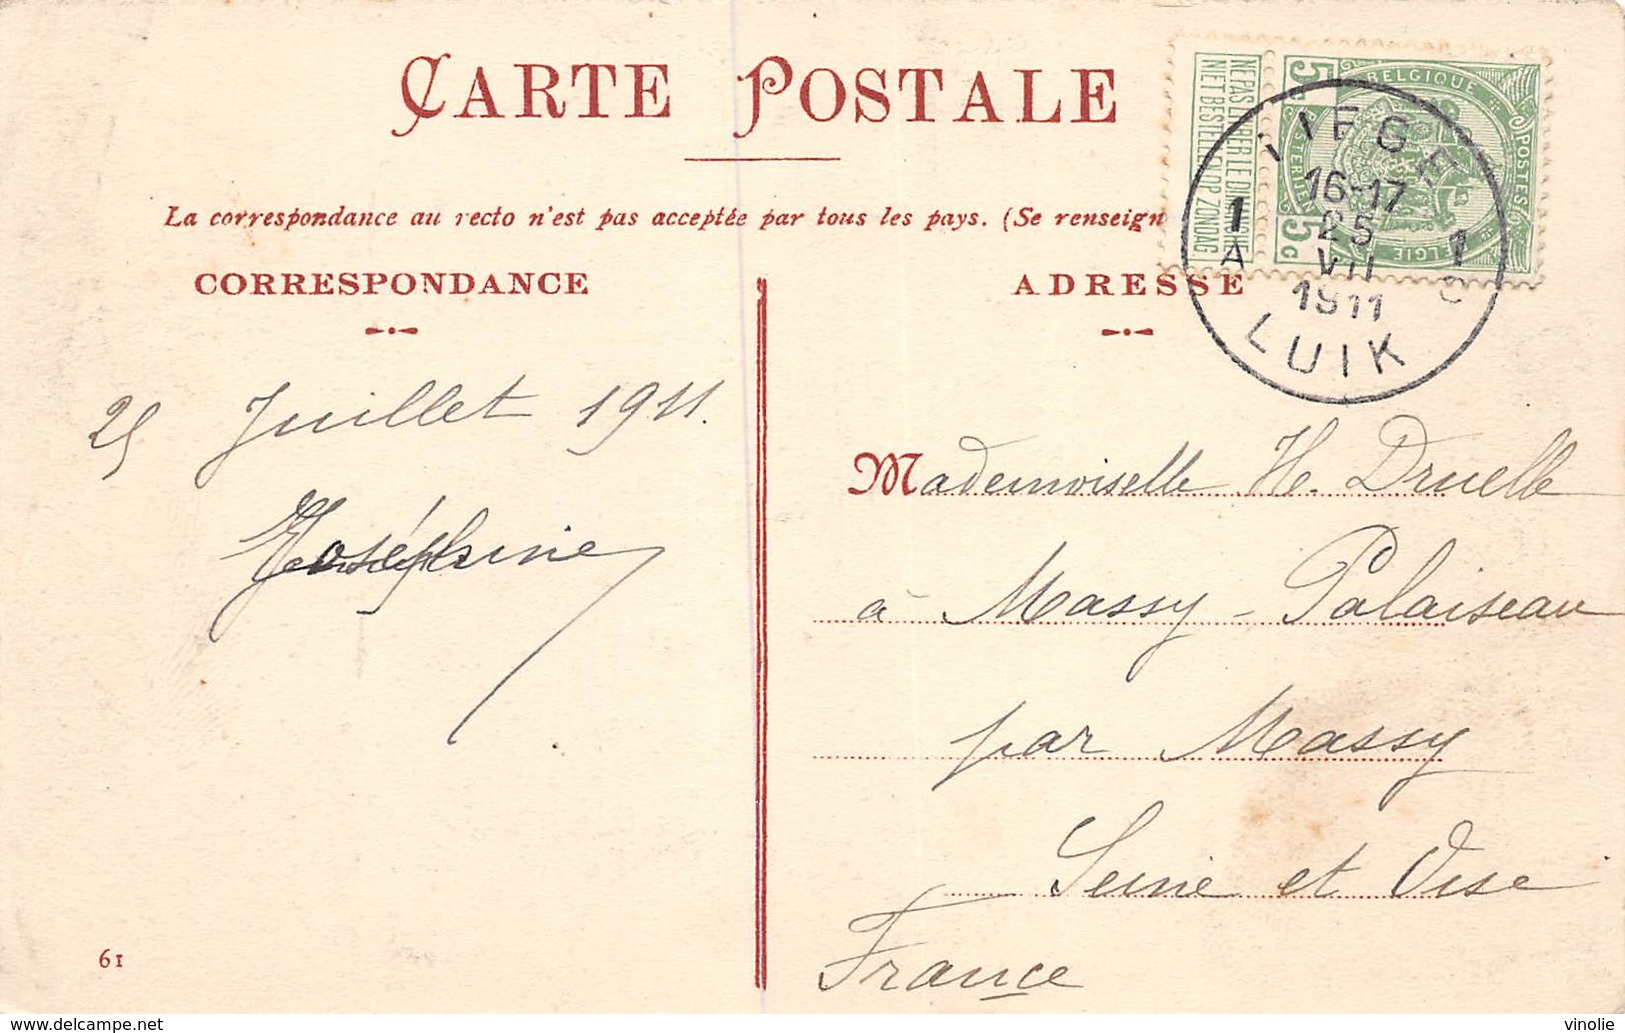 CARTE POSTALE
La correspondance au recto n'est pas acceptée par tous les pays. (Se renseign
CORRESPONDANCE
ADRESSE
NE PAS LIVRER LE DIMANCHE
NIET BESTELLEN OP ZONDAG
5 5c
BELGIQUE
POSTES
BELGIE
LIEGE
16-17
1 25 1
A VII
1911
LUIK
25 Juillet 1911.
Joséphine
Mademoiselle H. Druelle
à Massy-Palaiseau
par Massy
Seine et Oise
France
61
delcampe.net
vinolie